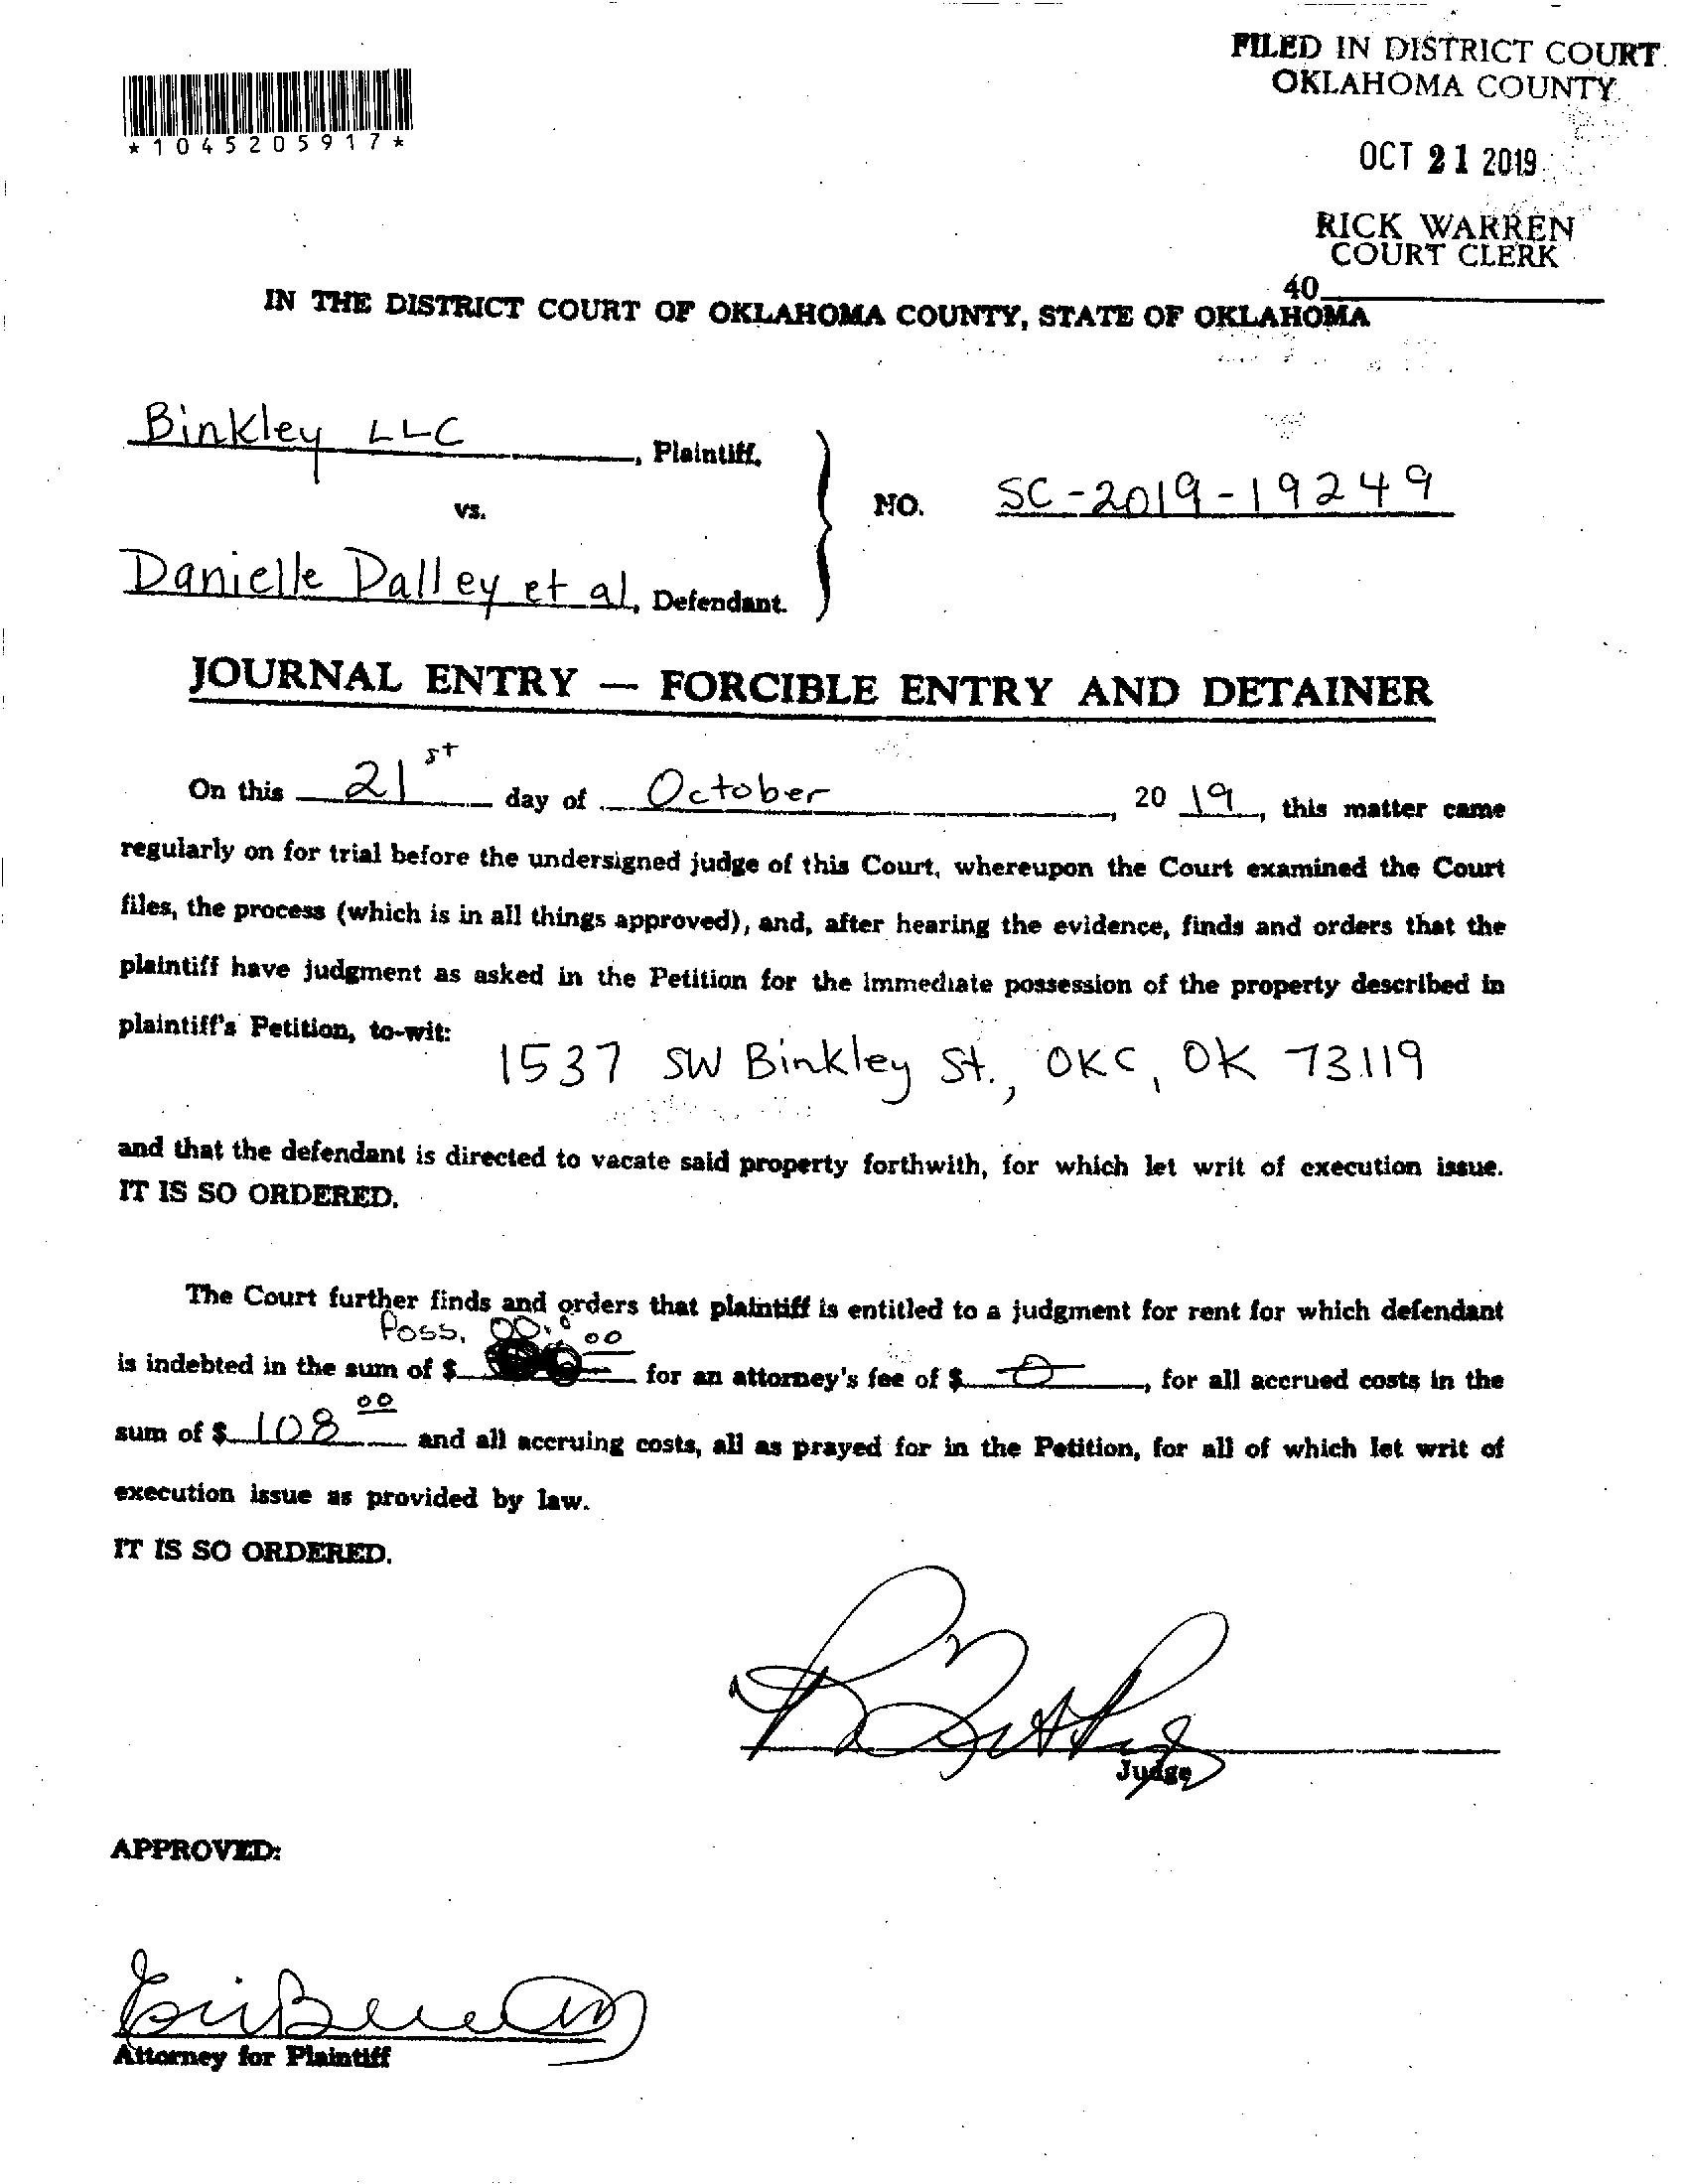 FILED IN DISTRICT COURT
OKLAHOMA COUNTY
*1045205917*
OCT 21 2019
RICK WARREN
COURT CLERK
40
IN THE DISTRICT COURT OF OKLAHOMA COUNTY, STATE OF OKLAHOMA
Binkley LLC, Plaintiff,
vs.
NO. SC-2019-19249
Danielle Dalley et al, Defendant.
JOURNAL ENTRY — FORCIBLE ENTRY AND DETAINER
On this 21st day of October, 20 19, this matter came
regularly on for trial before the undersigned judge of this Court, whereupon the Court examined the Court
files, the process (which is in all things approved), and, after hearing the evidence, finds and orders that the
plaintiff have judgment as asked in the Petition for the immediate possession of the property described in
plaintiff's Petition, to-wit:
1537 SW Binkley St., OKC, OK 73119
and that the defendant is directed to vacate said property forthwith, for which let writ of execution issue.
IT IS SO ORDERED.
The Court further finds and orders that plaintiff is entitled to a judgment for rent for which defendant
Poss.
is indebted in the sum of $ 00 for an attorney's fee of $ 0, for all accrued costs in the
sum of $ 108 00 and all accruing costs, all as prayed for in the Petition, for all of which let writ of
execution issue as provided by law.
IT IS SO ORDERED.
Judge
APPROVED:
Attorney for Plaintiff